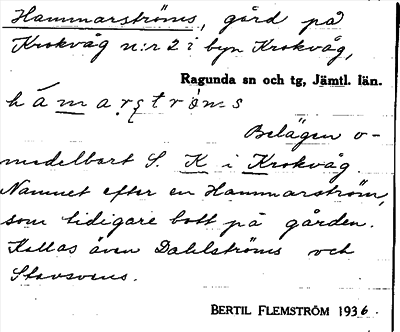 Hammarströms, gård på
Krokvåg n:r 2 i byn Krokvåg,
Ragunda sn och tg, Jämtl. län.
hámarströ̀ms
Belägen o-
medelbart S. K i Krokvåg.
Namnet efter en Hammarström,
som tidigare bott på gården.
Kallas även Dahlströms och
Stavsvens.
BERTIL FLEMSTRÖM 1936.